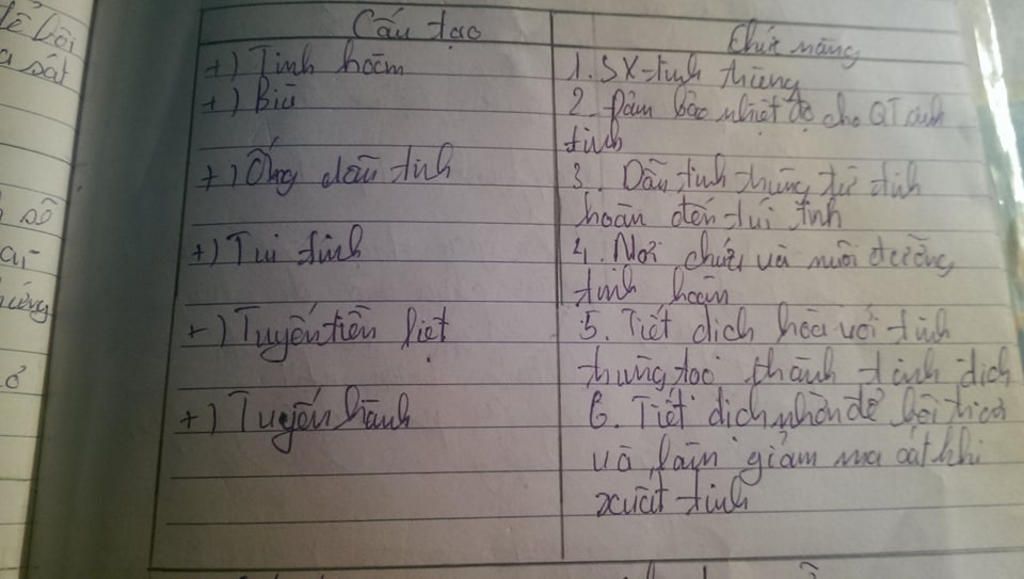 tế bôi
a sát
số
ai
cứng
ở
Cấu tạo
Chức năng
+) Tinh hoàn
1. SX tinh trùng
+) Bìu
2. Đảm bảo nhiệt độ cho QT sinh
tinh
+) Ống dẫn tinh
3. Dẫn tinh trùng từ tinh
hoàn đến túi tinh
+) Túi tinh
4. Nơi chứa và nuôi dưỡng
tinh hoàn
+) Tuyến tiền liệt
5. Tiết dịch hòa với tinh
trùng tạo thành tinh dịch
+) Tuyến hành
6. Tiết dịch nhờn để bôi trơn
và làm giảm ma sát khi
xuất tinh